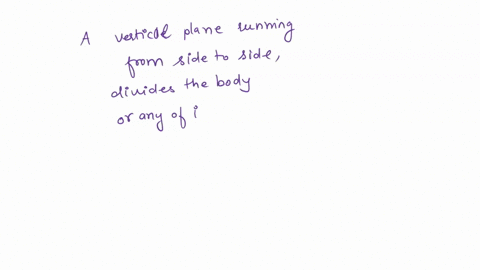 A vertical plane running
from side to side,
divides the body
or any of i